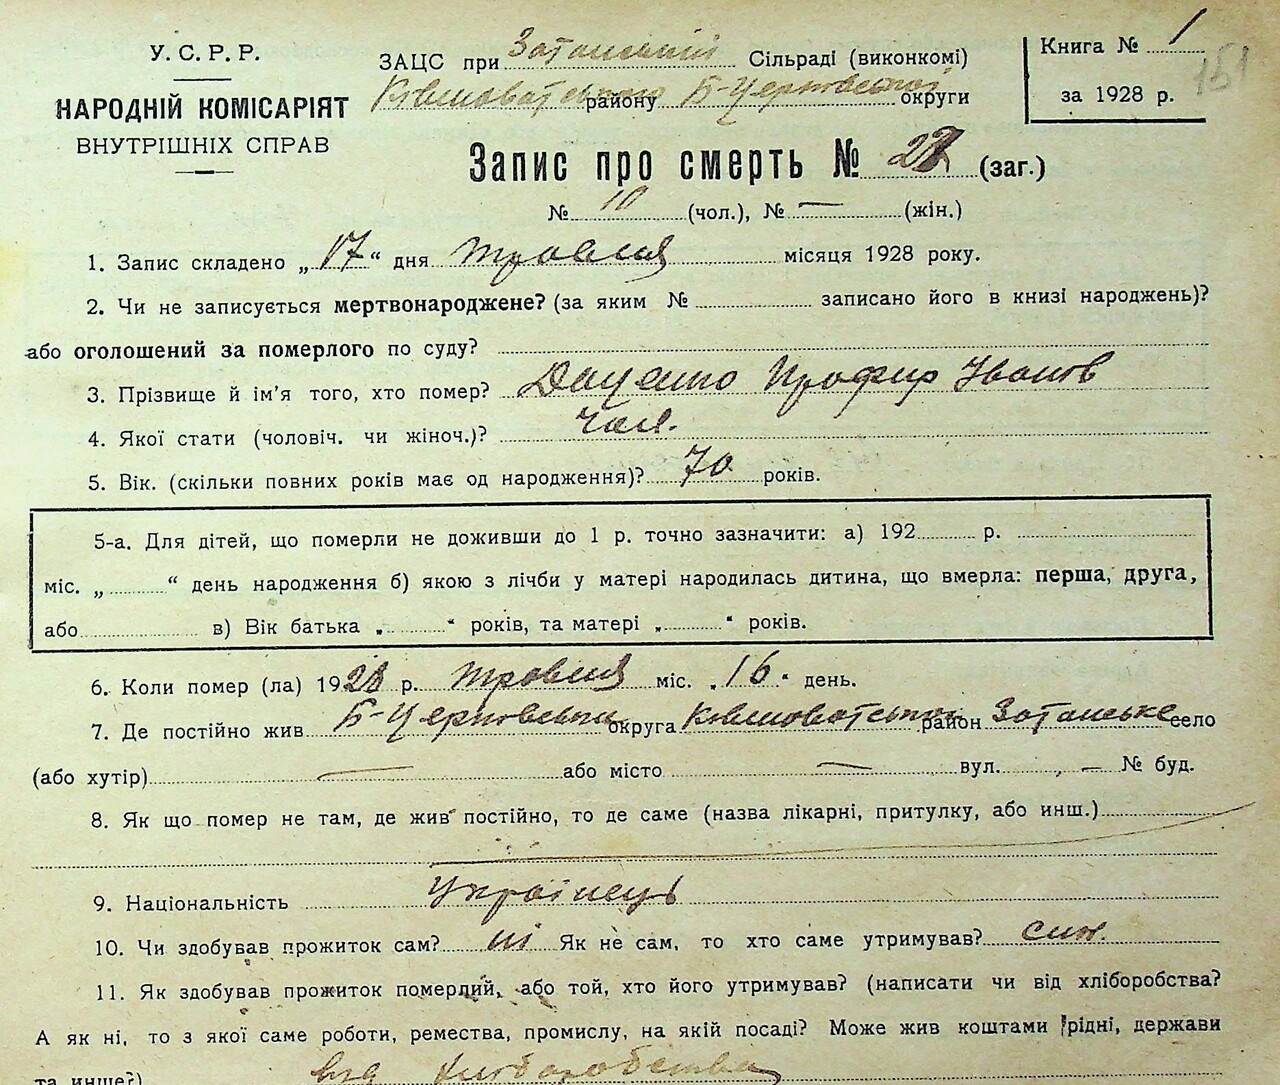 У.С.Р.Р.
НАРОДНІЙ КОМІСАРІЯТ
ВНУТРІШНІХ СПРАВ
ЗАЦС при Затонській Сільраді (виконкомі)
району Б-Церковської округи
Книга № 1
за 1928 р.
151
Запис про смерть № 22 (заг.)
№ 10 (чол.), № — (жін.)
1. Запис складено „17“ дня травня місяця 1928 року.
2. Чи не записується мертвонароджене? (за яким № записано його в книзі народжень)?
або оголошений за померлого по суду?
3. Прізвище й ім'я того, хто помер? Даценко Профир Іванов
4. Якої стати (чоловіч. чи жіноч.)? Чол.
5. Вік. (скільки повних років має од народження)? 70 років.
5-а. Для дітей, що померли не доживши до 1 р. точно зазначити: а) 192 р.
міс. „ “ день народження б) якою з лічби у матері народилась дитина, що вмерла: перша, друга,
або в) Вік батька „ “ років, та матері „ “ років.
6. Коли помер (ла) 1928 р. травня міс. „16“ день.
7. Де постійно жив Б-Церковська округа район село
(або хутір) — або місто — вул. , — № буд.
8. Як що помер не там, де жив постійно, то де саме (назва лікарні, притулку, або инш.)
9. Національність Українець
10. Чи здобував прожиток сам? ні Як не сам, то хто саме утримував? син.
11. Як здобував прожиток померлий, або той, хто його утримував? (написати чи від хліборобства?
А як ні, то з якої саме роботи, ремества, промислу, на якій посаді? Може жив коштами рідні, держави
та инше?) від хліборобства